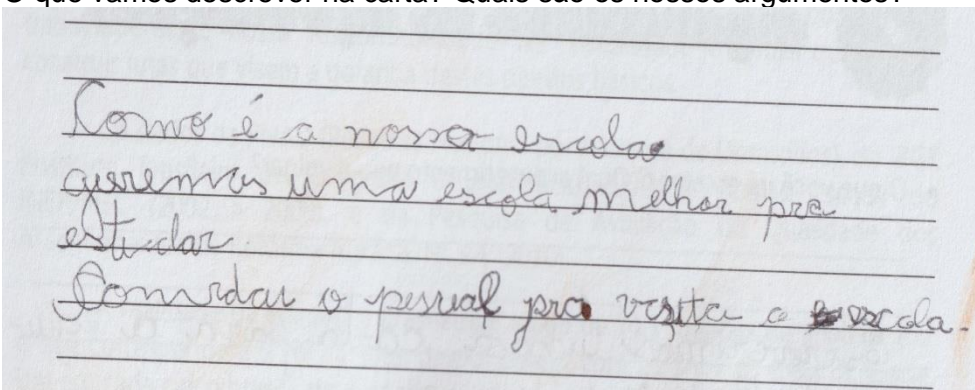 O que vamos descrever na carta? Quais são os nossos argumentos?
Como é a nossa escola
queremos uma escola melhor pra
estudar.
Comvidar o pesual pra vezita a escola.